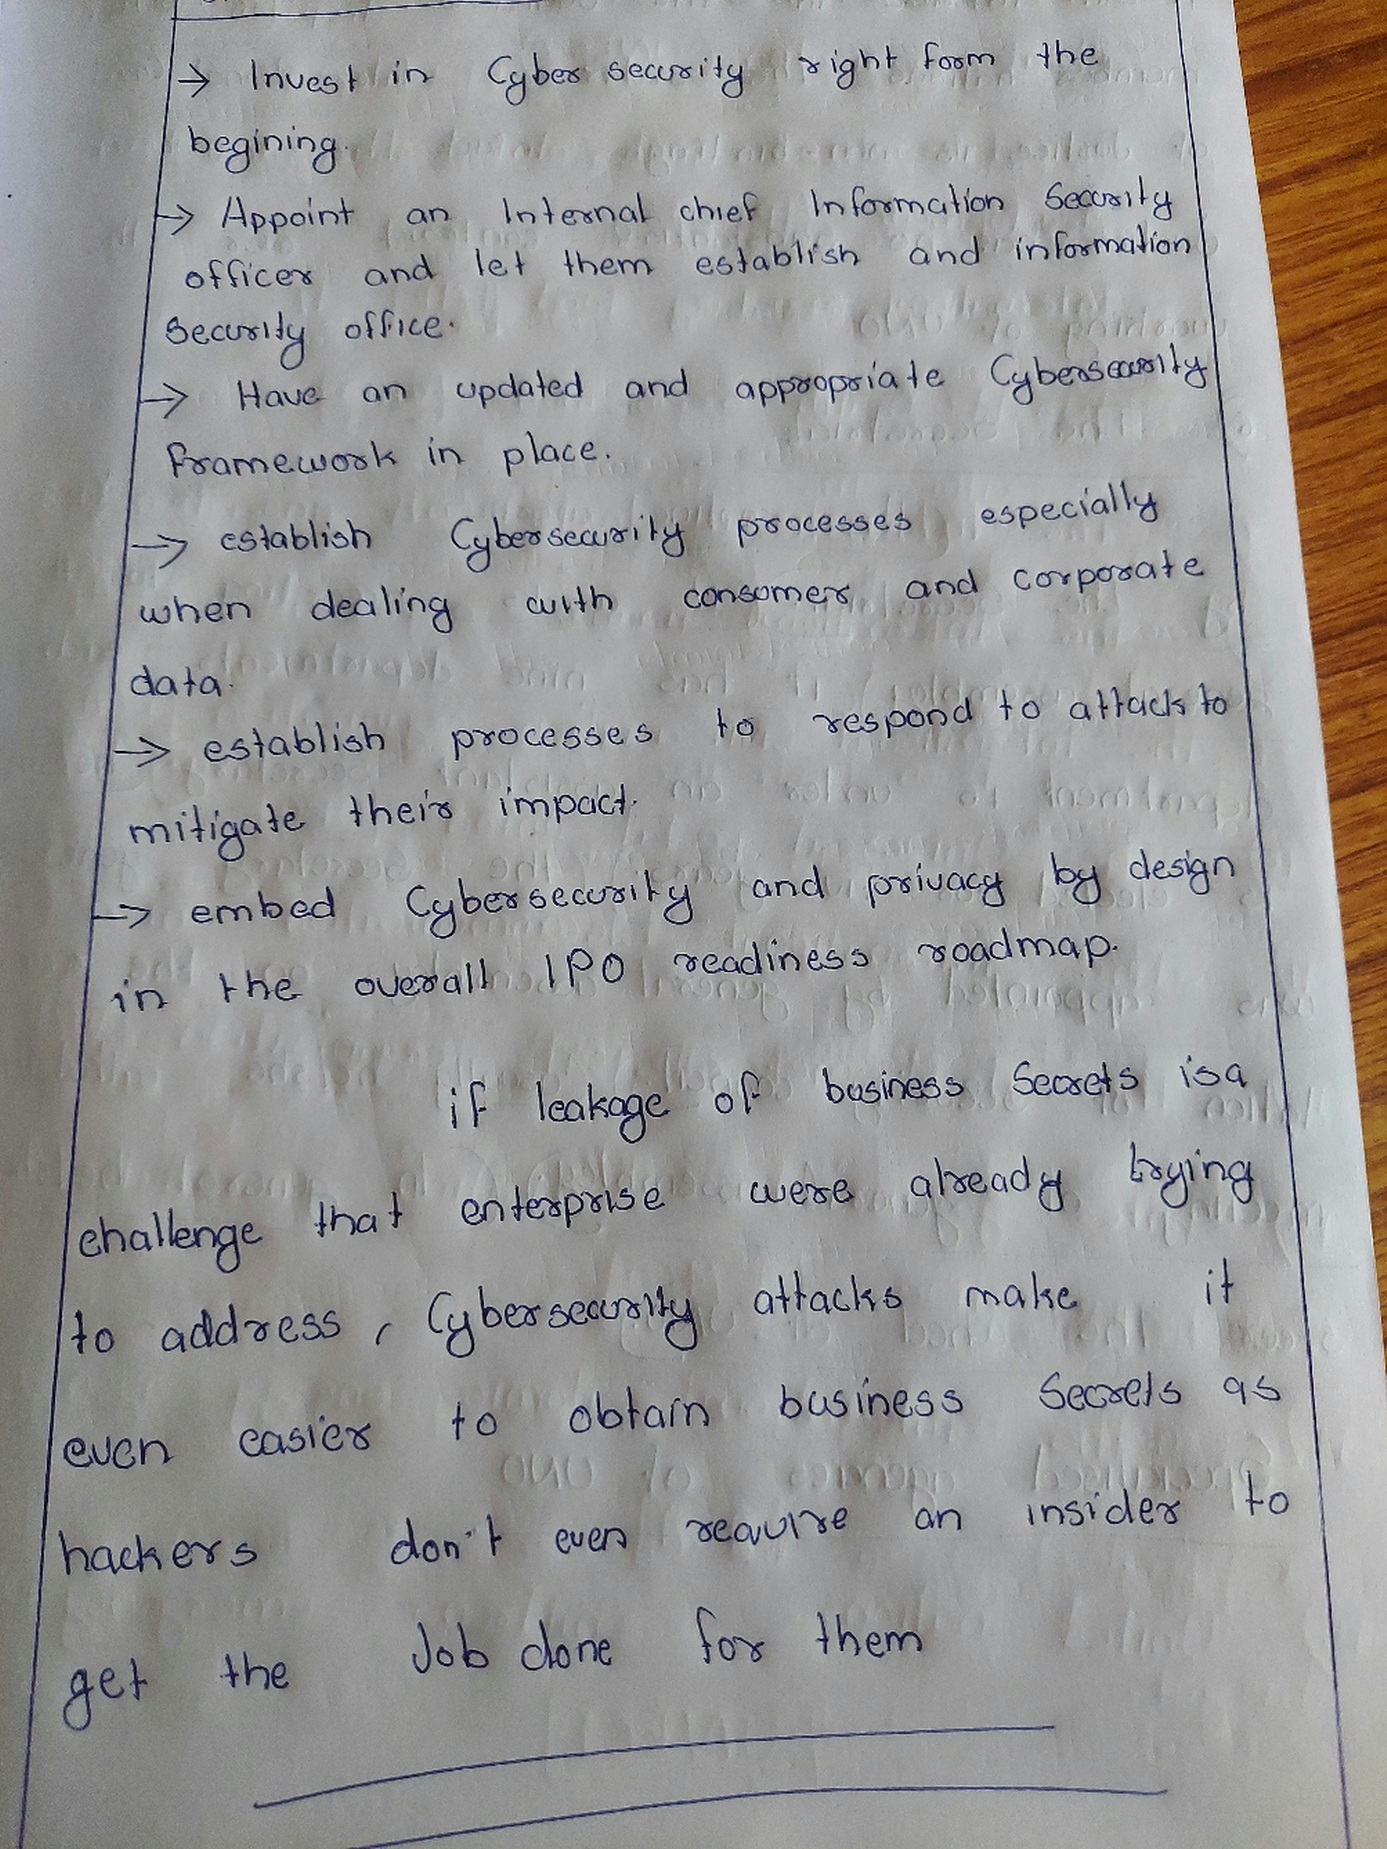 → Invest in Cyber security right form the
begining.
→ Appoint an Internal chief Information Security
officer and let them establish and information
Security office.
→ Have an updated and appropriate Cybersecurity
framework in place.
→ establish Cybersecurity processes especially
when dealing with consumers and corporate
data.
→ establish processes to respond to attack to
mitigate their impact.
→ embed Cybersecurity and privacy by design
in the overall IPO readiness roadmap.
if leakage of business Secrets is a
challenge that enterprise were already trying
to address, Cybersecurity attacks make it
even easier to obtain business Secrets as
hackers don't even require an insider to
get the Job done for them